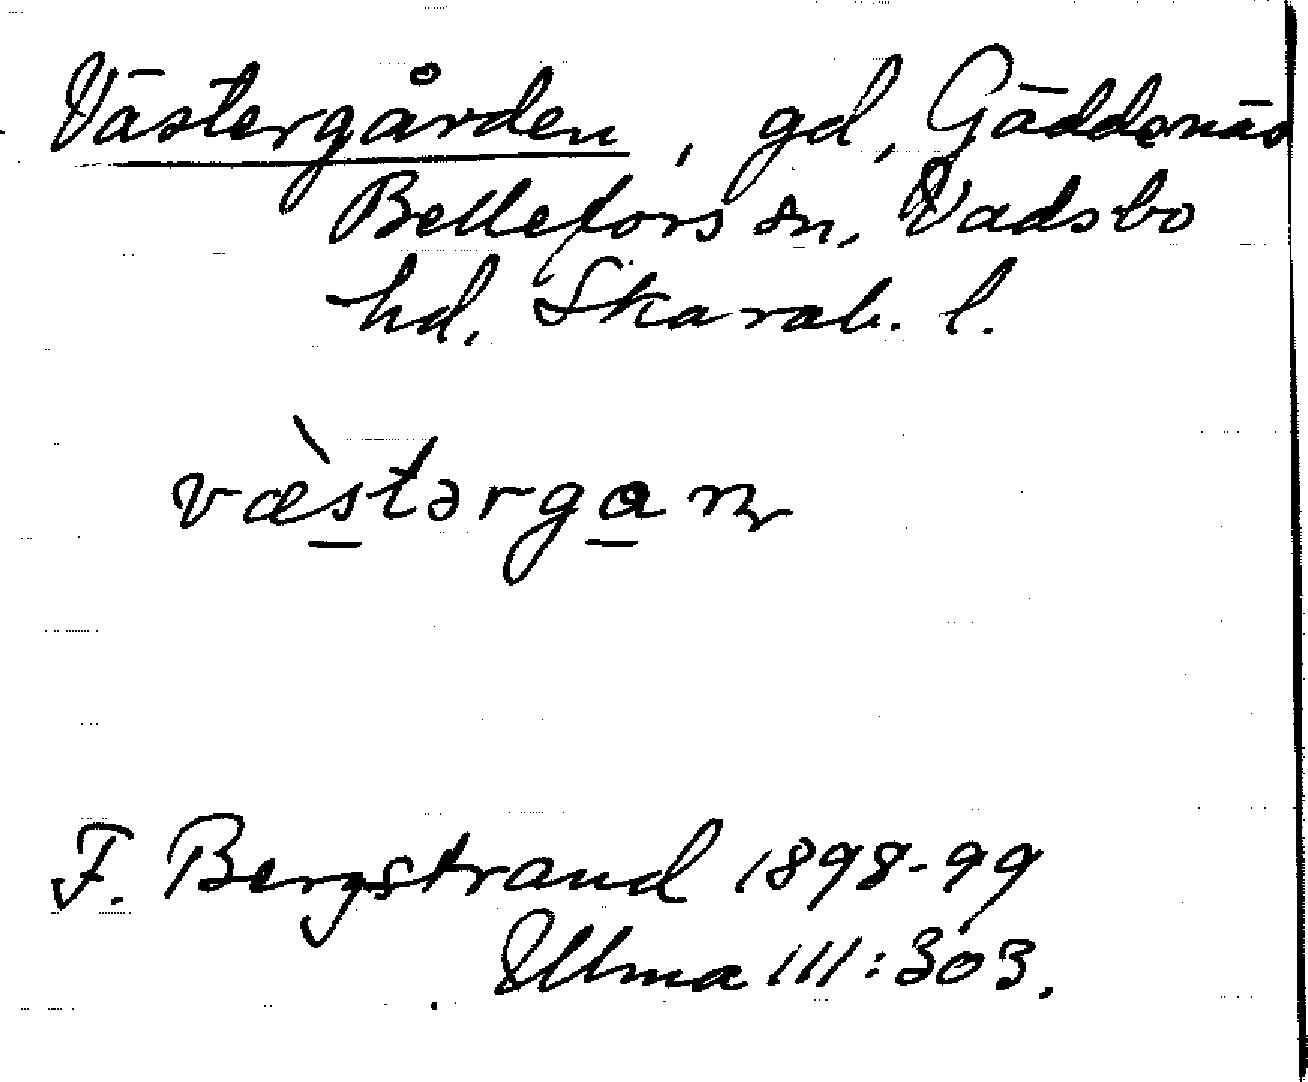 Västergården, gd, Gäddenäs
Bellefors sn, Vadsbo
hd. Skarab. l.
væ̀stərgaɳ
F. Bergstrand 1898-99
Ulma 111:303.